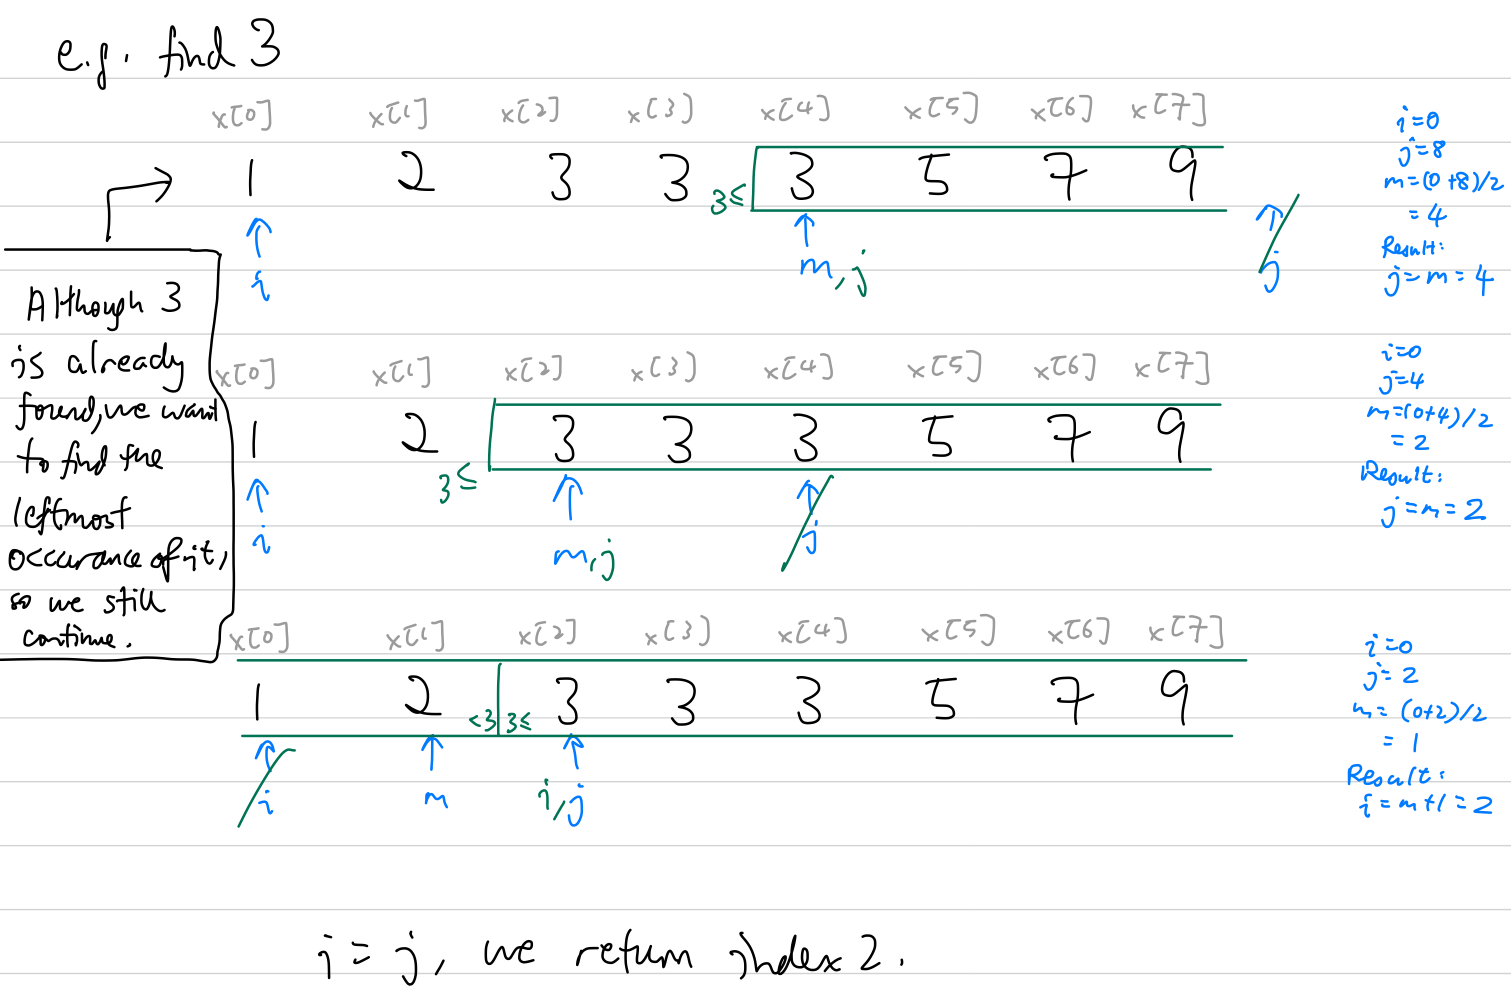 e.g. find 3
x[0] x[1] x[2] x[3] x[4] x[5] x[6] x[7]
1 2 3 3 3≤ 3 5 7 9
i m,j j
i=0
j=8
m=(0+8)/2
=4
Result:
j=m=4
Although 3
is already
found, we want
to find the
leftmost
occurance of it,
so we still
continue.
x[0] x[1] x[2] x[3] x[4] x[5] x[6] x[7]
1 2 3≤ 3 3 3 5 7 9
i m,j j
i=0
j=4
m=(0+4)/2
=2
Result:
j=m=2
x[0] x[1] x[2] x[3] x[4] x[5] x[6] x[7]
1 2 <3 3≤ 3 3 3 5 7 9
i m i,j
i=0
j=2
m=(0+2)/2
=1
Result:
i=m+1=2
i=j, we return index 2.